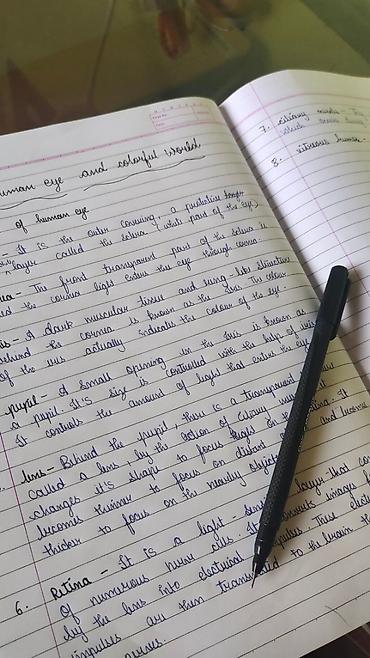 uman eye and colorful world
of human eye
It is the outer covering, a protective tough
layer called the sclera (white part of the eye)
The front transparent part of the sclera is
the cornea light enters the eye through cornea.
A dark muscular tissue and ring-like structure
behind the cornea is known as the iris. The colour
of the iris actually indicates the colour of the eye.
pupil - A small opening in the iris is known as
a pupil. It's size is controlled with the help of iris
It controls the amount of light that enters the eye
lens - Behind the pupil, there is a transparent
called a lens, by the action of ciliary
changes it's shape to focus light on the
becomes thinner to focus on distant and becomes
thicker to focus on the nearby objects
6. Retina - It is a light - layer that
of numerous nerve cells. It converts images
by the lens into electrical impulses. These
impulses are then to the brain
nerves.
7. ciliary muscle -
8. vitreous humor -